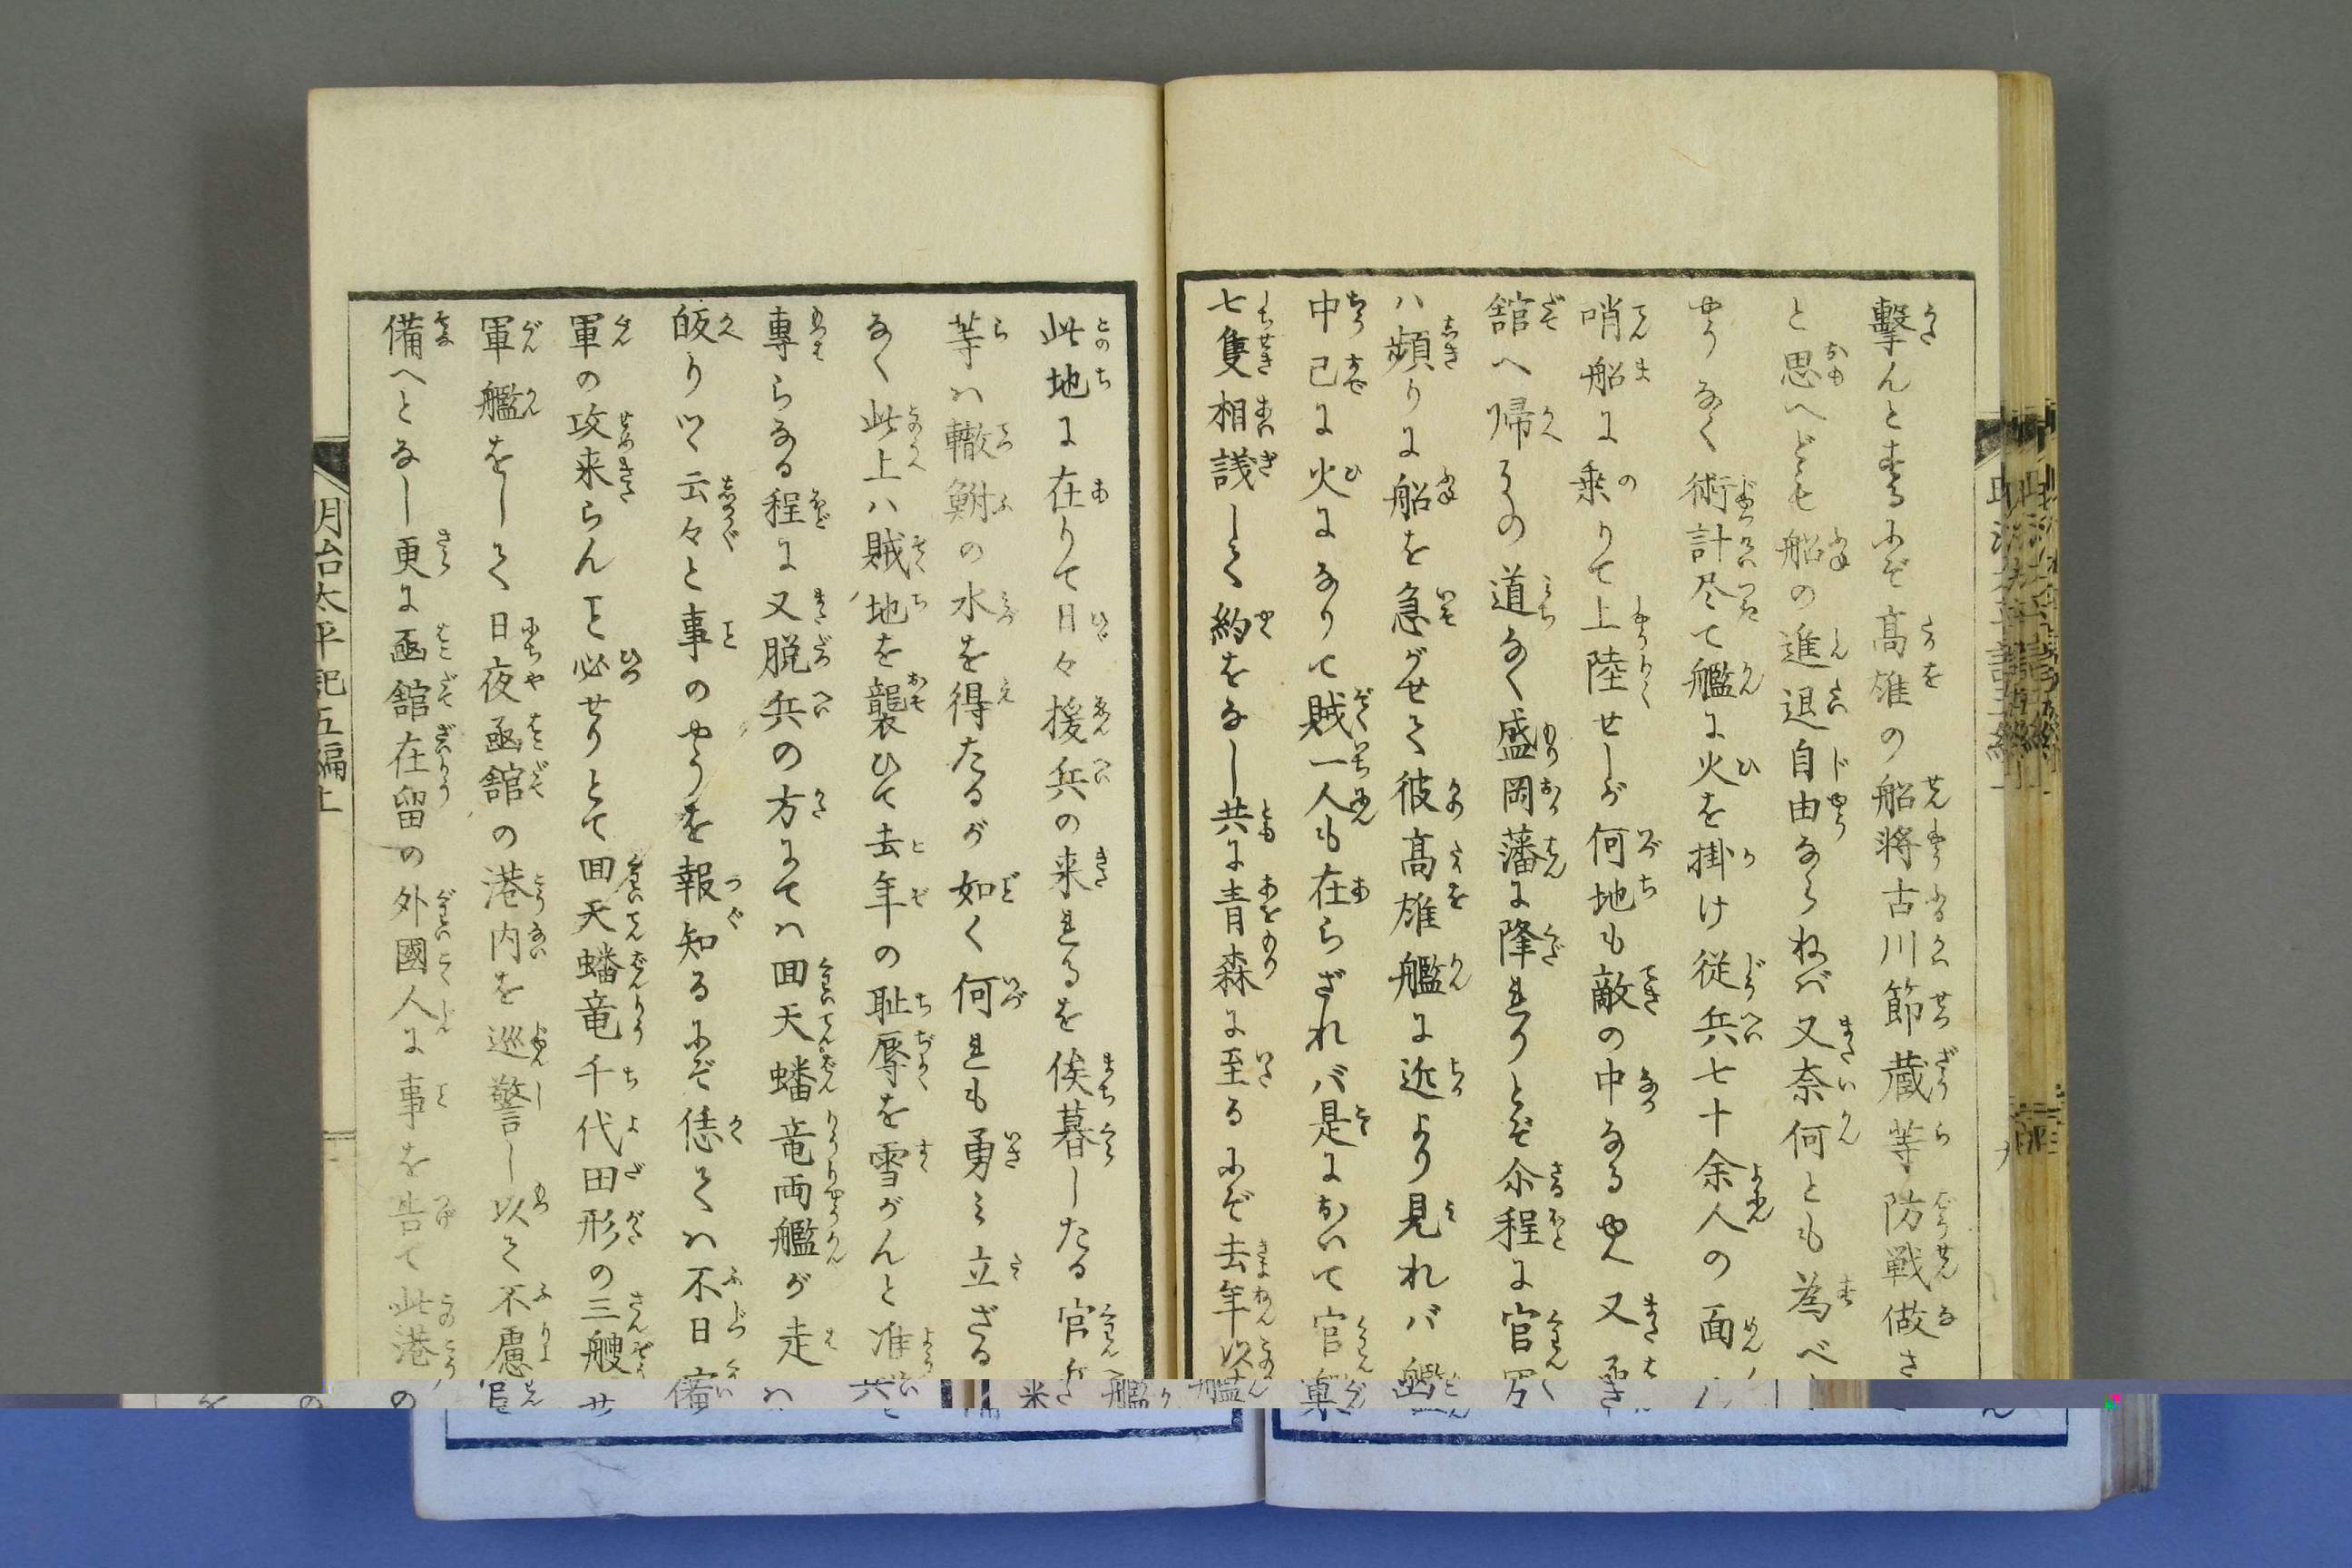 擊んとするにぞ高雄の船将古川節蔵等防戦做さ
と思へども船の進退自由ならねバ又奈何とも為べ
やうなく術計尽て艦に火を掛け従兵七十余人の面
哨船に乗りて上陸せしが何地も敵の中なるゆへ又
舘へ帰るの道なく盛岡藩に降れりとぞ尒程に官
ハ頻りに船を急がせて彼高雄艦に近より見れバ
中已に火になりて賊一人も在らざれバ是において官
七隻相議して約をなし共に青森に至るにぞ去年以
此地に在りて日々援兵の来れるを俟暮したる官兵
等ハ轍鮒の水を得たるが如く何れも勇み立ざる
なく此上ハ賊地を襲ひて去年の耻辱を雪がんと准
專らなる程に又脱兵の方にてハ回天蟠竜両艦が走
皈りて云々と事のやうを報知るにぞ恁てハ不日
軍の攻来らんこと必せりとて回天蟠竜千代田形の三艘
軍艦をして日夜凾舘の港内を巡警し以て不慮
備へとなし更に凾舘在留の外國人に事を告て此港の
明治太平記五編上